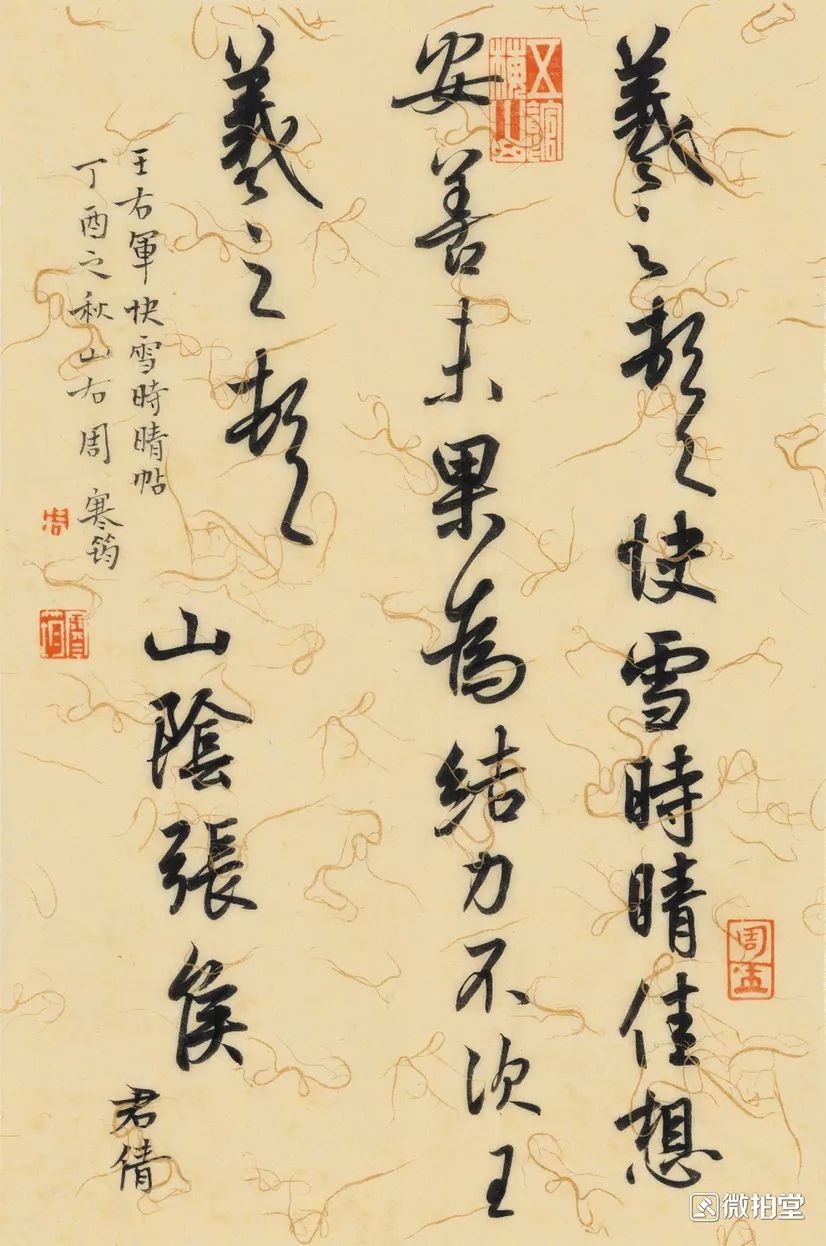 羲之頓首快雪時晴佳想
安善未果為結力不次王
羲之頓首
山陰張侯
君倩
王右軍快雪時晴帖
丁酉之秋山右周寒筠
周
周孟
微拍堂